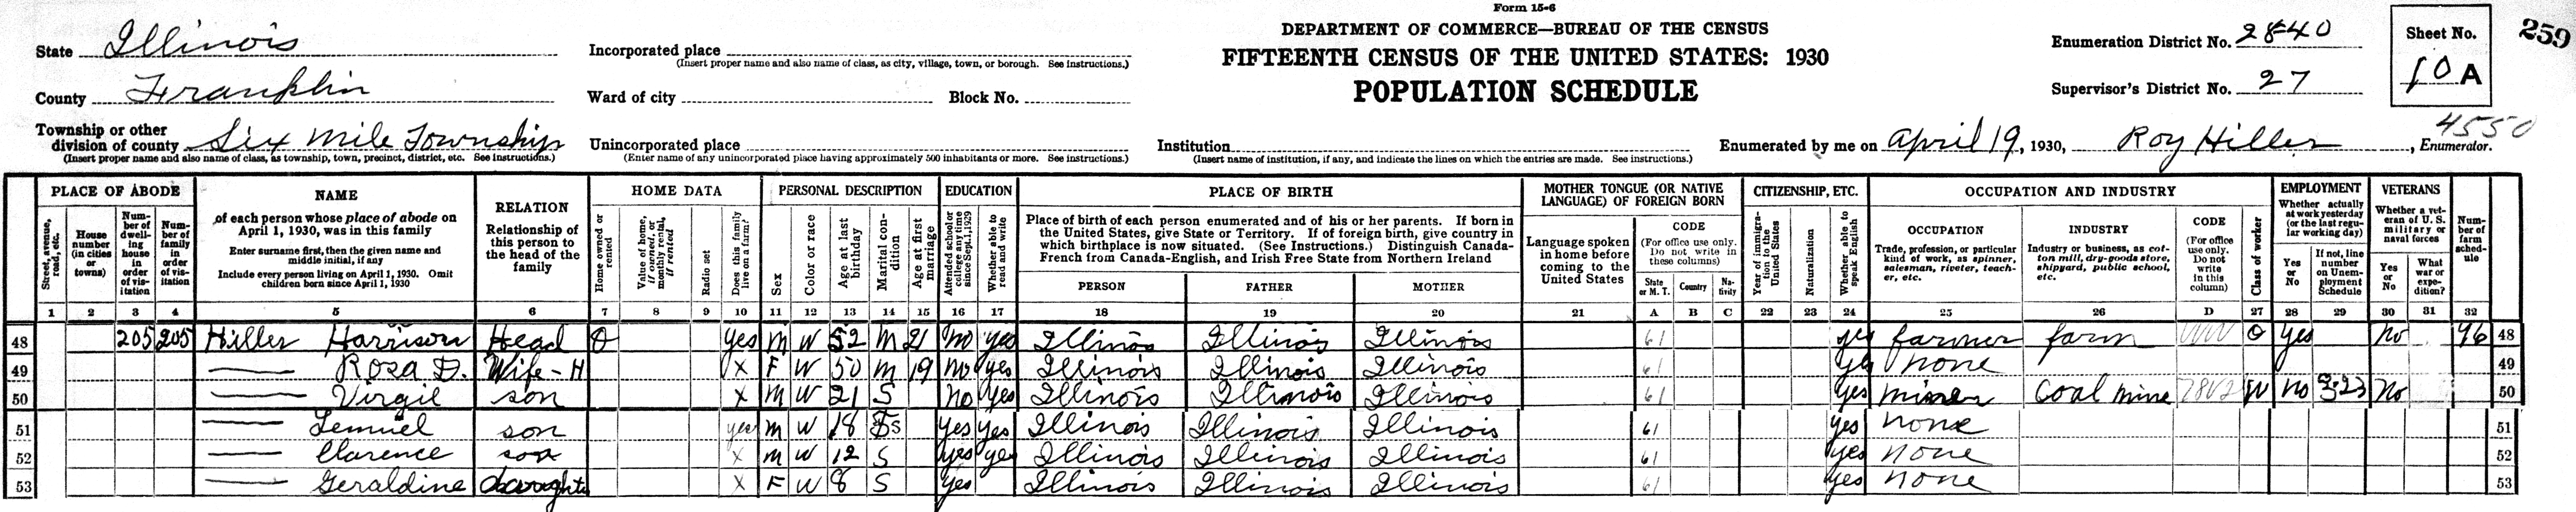 Form 15-6
State Illinois
Incorporated place
(Insert proper name and also name of class, as city, village, town, or borough. See instructions.)
DEPARTMENT OF COMMERCE—BUREAU OF THE CENSUS
FIFTEENTH CENSUS OF THE UNITED STATES: 1930
POPULATION SCHEDULE
Enumeration District No. 28-40
Sheet No.
10 A
259
County Franklin
Ward of city Block No.
Supervisor's District No. 27
Township or other division of county Six Mile Township
(Insert proper name and also name of class, as township, town, precinct, district, etc. See instructions.)
Unincorporated place
(Enter name of any unincorporated place having approximately 500 inhabitants or more. See instructions.)
Institution
(Insert name of institution, if any, and indicate the lines on which the entries are made. See instructions.)
Enumerated by me on April 19, 1930, Roy Hiller, Enumerator.
4550
PLACE OF ABODE
Street, avenue, road, etc.
House number (in cities or towns)
Number of dwelling house in order of visitation
Number of family in order of visitation
NAME
of each person whose place of abode on April 1, 1930, was in this family
Enter surname first, then the given name and middle initial, if any
Include every person living on April 1, 1930. Omit children born since April 1, 1930
RELATION
Relationship of this person to the head of the family
HOME DATA
Home owned or rented
Value of home, if owned, or monthly rental, if rented
Radio set
Does this family live on a farm?
PERSONAL DESCRIPTION
Sex
Color or race
Age at last birthday
Marital condition
Age at first marriage
EDUCATION
Attended school or college any time since Sept. 1, 1929
Whether able to read and write
PLACE OF BIRTH
Place of birth of each person enumerated and of his or her parents. If born in the United States, give State or Territory. If of foreign birth, give country in which birthplace is now situated. (See Instructions.) Distinguish Canada-French from Canada-English, and Irish Free State from Northern Ireland
PERSON FATHER MOTHER
MOTHER TONGUE (OR NATIVE LANGUAGE) OF FOREIGN BORN
Language spoken in home before coming to the United States
CODE
(For office use only. Do not write in these columns)
State or M. T. Country Nativity
CITIZENSHIP, ETC.
Year of immigration to the United States
Naturalization
Whether able to speak English
OCCUPATION AND INDUSTRY
OCCUPATION
Trade, profession, or particular kind of work, as spinner, salesman, riveter, teacher, etc.
INDUSTRY
Industry or business, as cotton mill, dry-goods store, shipyard, public school, etc.
CODE
(For office use only. Do not write in this column)
Class of worker
EMPLOYMENT
Whether actually at work yesterday (or the last regular working day)
Yes or No
If not, line number on Unemployment Schedule
VETERANS
Whether a veteran of U. S. military or naval forces
Yes or No
What war or expedition?
Number of farm schedule
1 2 3 4 5 6 7 8 9 10 11 12 13 14 15 16 17 18 19 20 21 A B C 22 23 24 25 26 D 27 28 29 30 31 32
48 205 205 Hiller Harrison Head O Yes M W 52 M 21 No yes Illinois Illinois Illinois 61 yes farmer farm VVVV O Yes No 96 48
49 Rosa D. Wife-H X F W 50 M 19 No Yes Illinois Illinois Illinois 61 yes none 49
50 Virgil son X M W 21 S No Yes Illinois Illinois Illinois 61 Yes miner Coal mine W No No 50
51 Lemuel son yes M W 18 S Yes Yes Illinois Illinois Illinois 61 yes none 51
52 Clarence son X M W 12 S yes yes Illinois Illinois Illinois 61 yes none 52
53 Geraldine daughter X F W 8 S Yes Illinois Illinois Illinois 61 yes none 53